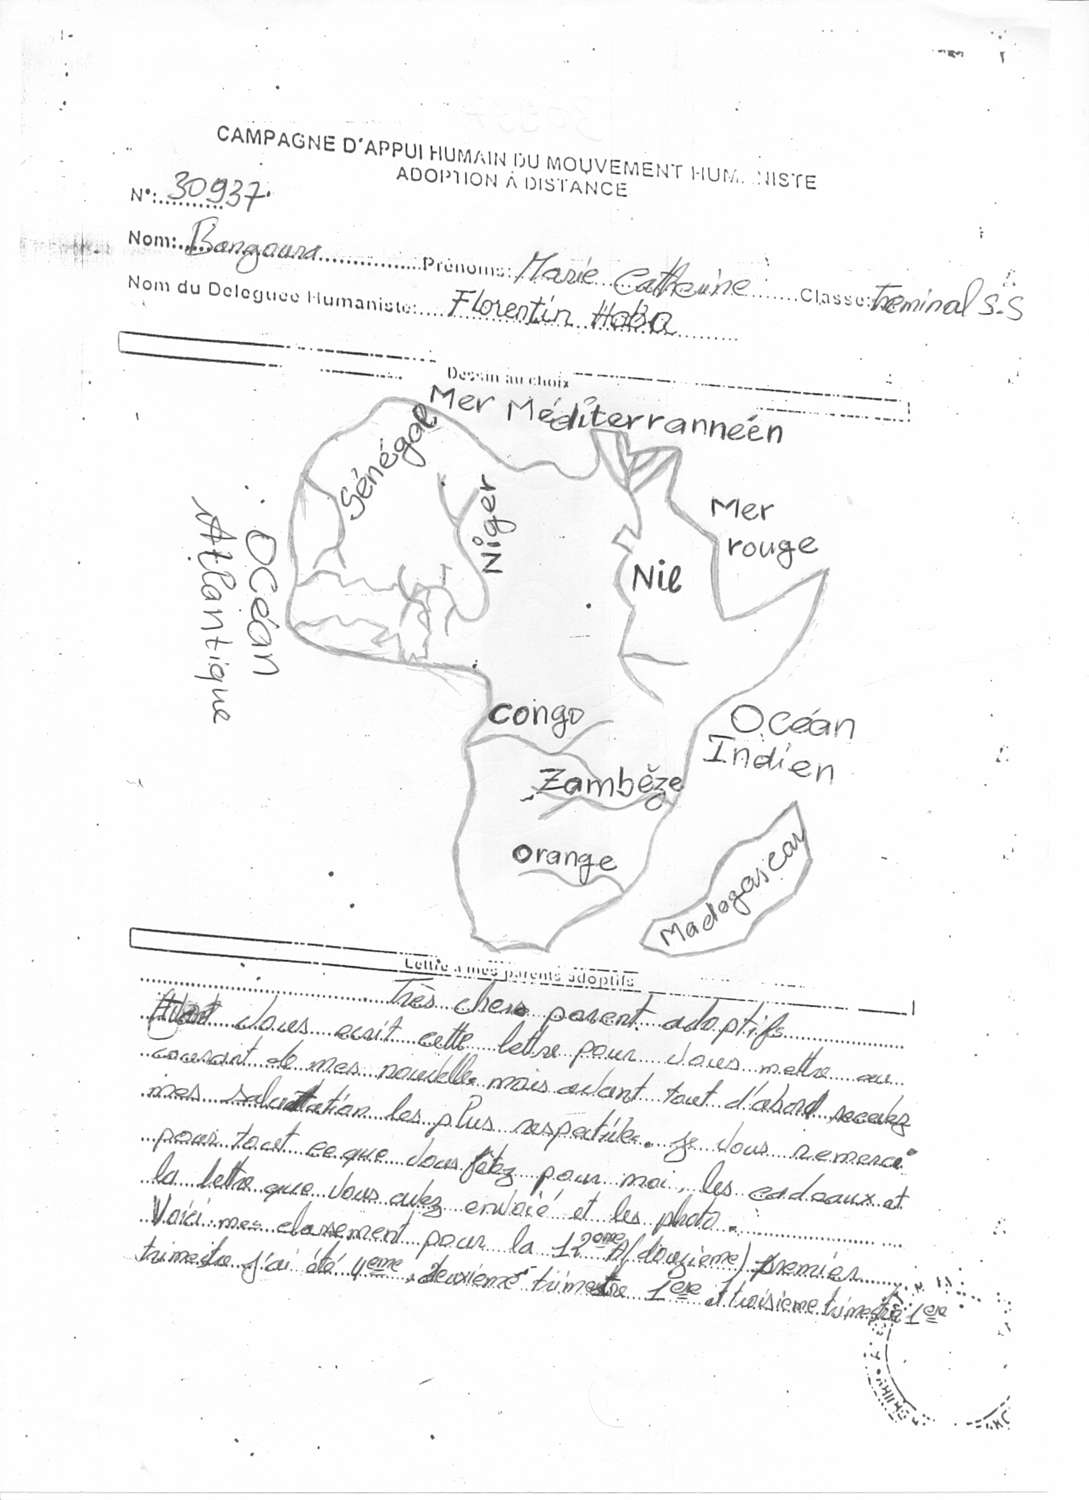 CAMPAGNE D'APPUI HUMAIN DU MOUVEMENT HUM. NISTE
ADOPTION À DISTANCE
N°: 30937
Nom: Bangoura Prénoms: Marie Catherine Classe: Treminal S.S
Nom du Deleguee Humaniste: Florentin Haba
Dessin au choix
Mer Méditerrannéén
Sénégal
Niger
Mer
rouge
Nil
Océan
Atlantique
Congo
Océan
Indien
Zambèze
Orange
Madagascar
Lettre a mes parents adoptifs
Très chers parent adoptifs
vous ecrit cette lettre pour vous mettre au
courant de mes nouvelle mais avant tout d'abord recevez
mes salutation les plus respectible. je vous remerci
pour tout ce que vous fêtez pour moi, les cadeaux et
la lettre que vous avez envoié et les photo.
Voici mes classement pour la 12eme A (douzieme) premier
trimestre j'ai été 4eme, deuxième trimestre 1ere et troisieme trimestre 1ere